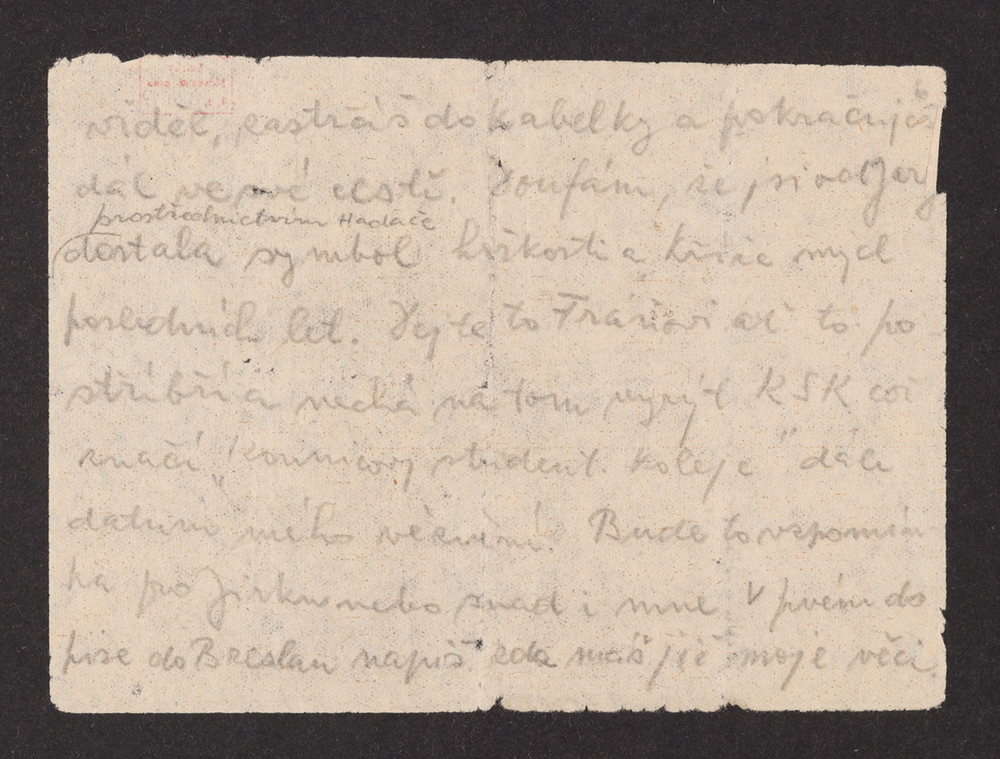 viděl, zastrčíš do kabelky a pokračuješ
dál ve své cestě. Doufám, že jsi od
prostřednictvím Hadače
dostala symbol lidskosti a kříže mých
posledních let. Dejte to Fráňovi ať to po
stříbří a nechá na tom vyrýt KSK což
značí „Kounicovy student. koleje" dále
datum mého věznění. Bude to vzpomín
ka pro Jirku nebo snad i mne. V prvém do
pise do Breslau napiš zda máš již moje věci.